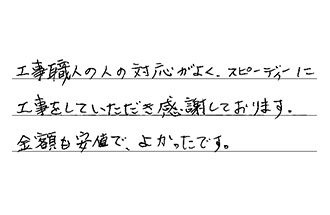 工事職人の人の対応がよく、スピーディーに
工事をしていただき感謝しております。
金額も安値で、よかったです。